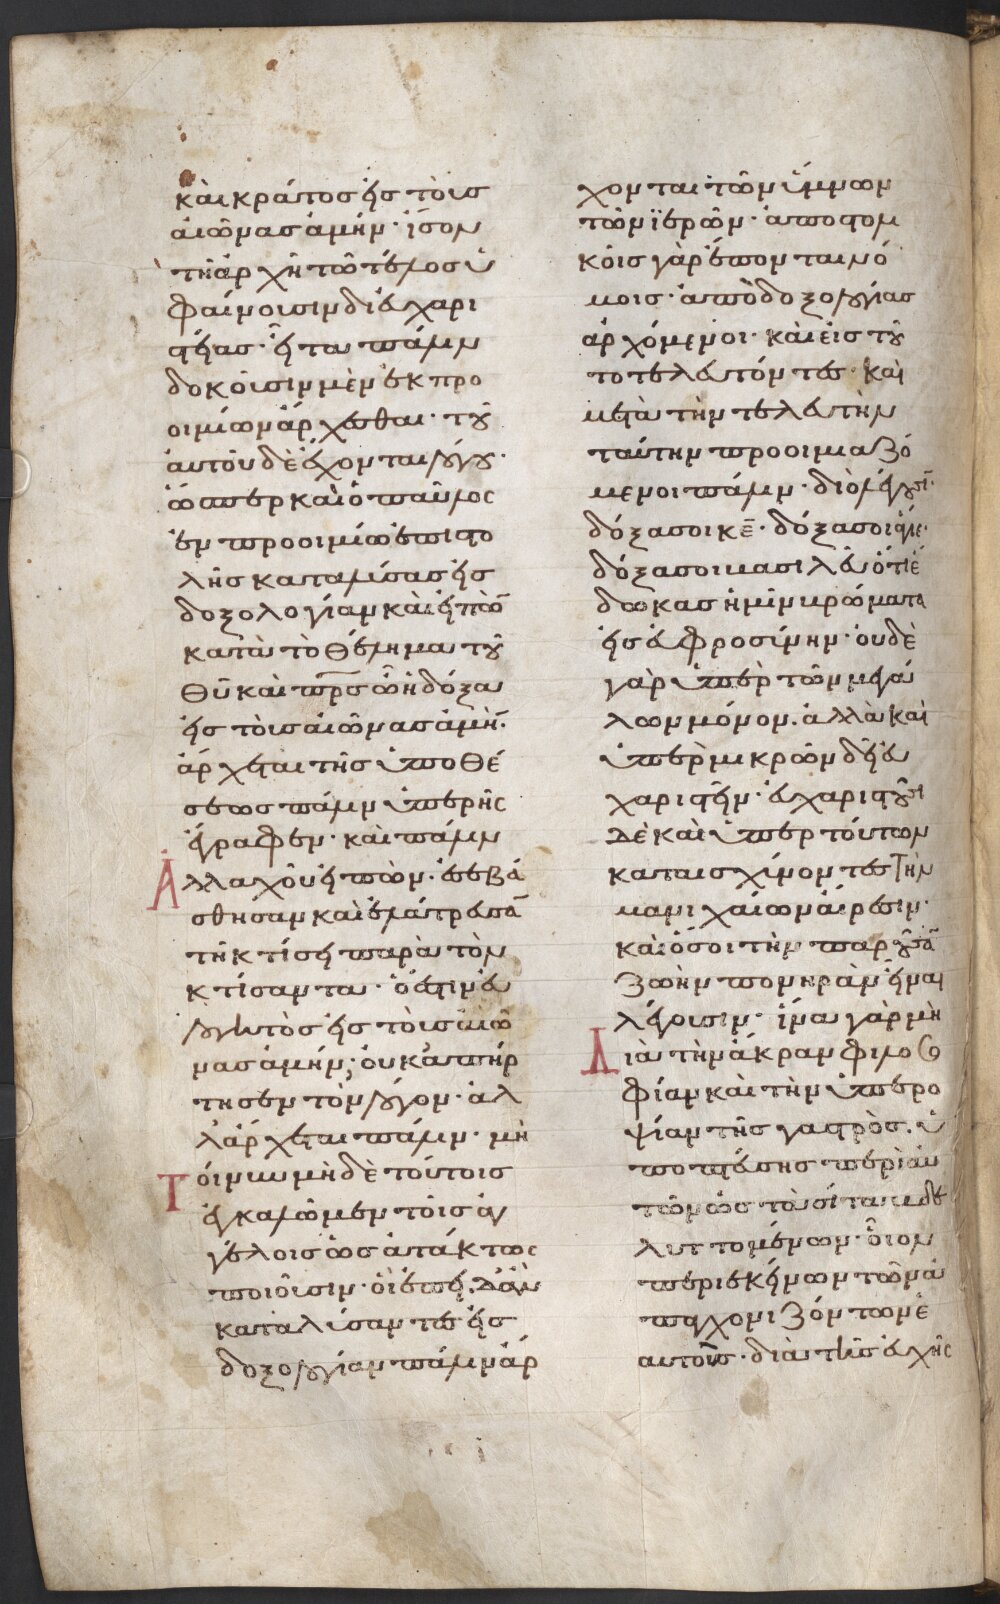 κὰι κράτοσ ἐισ τὸισ
ἀιῶνασ ἀμήν· ἴσον
τῆ ἀρχῆ τῶ τέλοσ ὑ
φαίνουσιν δι ἐυχαρι
στέιασ· εἶτα πάλιν
δοκοῦσιν μὲν ἐκ προ
οιμίων ἄρχεσθαι· τοῦ
ἀυτοῦ δὲ ἔχονται λόγου·
ὥσπερ καὶ ὁ παῦλος
ἐν προοιμίω ἐπιστο
λῆσ καταλύσασ ἐισ
δοξολογίαν καὶ ἐιπὼν
κατὰ τὸ θέλημα τοῦ
θῡ καὶ πρ̅σ ὧ ἡ δόξα
ἐισ τὸισ ἀιῶνασ ἀμήν·
ἄρχεται τῆσ ὑποθέ
σεωσ πάλιν ὑπερ ἧς
ἔγραφεν· καὶ πάλιν
Ἀλλαχοῦ ἐιπὼν· ἐσεβά
σθησαν καὶ ἐλάτρευσαν
τῆ κτίσει παρὰ τὸν
κτίσαντα· ὅ ἐστιν ἐυ
λογιτὸσ ἐισ τὸισ ἀιῶ
νασ ἀμήν; ὀυκ ἀπήρ
τησεν τὸν λόγον· ἀλ
λ ἄρχεται πάλιν· μὴ
Τόινυν μηδὲ τούτοισ
ἐγκαλῶμεν τὸισ ἀγ
γέλοισ ὡσ ἀτάκτως
ποιοῦσιν· ὁὶ ἐπειδὰν
καταλύσαντεσ ἐισ
δοξολογίαν πάλιν ἄρ
χονται τῶν ὕμνων
τῶν ϊερῶν· ἀποστολι
κόισ γὰρ ἕπονται νό
μοισ· ἀπὸ δοξολογίασ
ἀρχόμενοι· κὰι ἐισ τοῦ
το τελευτόντεσ· καὶ
μετὰ τὴν τελευτὴν
ταύτην προοιμιαζό
μενοι πάλιν· διὸ λέγουσιν·
δόξα σοι κε̅· δόξα σοι ἅγιε·
δόξα σοι βασιλεῦ ὅτι ἔ
δωκασ ἡμῖν βρώματα
ἐισ ἐυφροσύνην· ὀυδὲ
γὰρ ὑπὲρ τῶν μεγά
λων μόνον· ἀλλὰ καὶ
ὑπερ μικρῶν δεῖ ἐυ
χαριστεῖν· ἐυχαριστοῦσι
δὲ καὶ ὑπερ τούτων
καταισχύνοντεσ τὴν
μανιχαίων ἅιρεσιν·
κὰι ὅσοι τὴν παροῦσαν
ζωὴν πονηρὰν εἶναι
λέγουσιν· ἵνα γὰρ μὴ
Διὰ τὴν ἄκραν φιλοσο
φίαν καὶ τὴν ὑπερο
ψίαν τῆσ γαστρὸσ· ὑ
ποπτεύσησ περὶ ἀυ
τῶν ὡσ τὰ σίτα βδε
λυττομένων· οἷον
περὶ ἐκείνων τῶν ἀ
παγχονιζόντων ἑ
αυτοῦσ· διὰ τῆσ ἐυχῆς